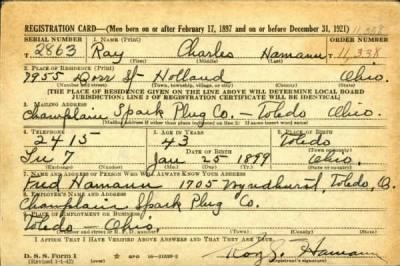 REGISTRATION CARD—(Men born on or after February 17, 1897 and on or before December 31, 1921)
SERIAL NUMBER 1. NAME (Print) ORDER NUMBER
T 2863 Ray Charles Hamann T 11,338
(First) (Middle) (Last)
2. PLACE OF RESIDENCE (Print)
7955 Dorr St Holland Ohio.
(Number and street) (Town, township, village, or city) (County) (State)
[THE PLACE OF RESIDENCE GIVEN ON THE LINE ABOVE WILL DETERMINE LOCAL BOARD
JURISDICTION; LINE 2 OF REGISTRATION CERTIFICATE WILL BE IDENTICAL]
3. MAILING ADDRESS
Champlain Spark Plug Co. – Toledo Ohio
[Mailing address if other than place indicated on line 2. If same insert word same]
4. TELEPHONE 5. AGE IN YEARS 6. PLACE OF BIRTH
2415 43 Toledo
DATE OF BIRTH
Jan 25 1899 Ohio.
7. NAME AND ADDRESS OF PERSON WHO WILL ALWAYS KNOW YOUR ADDRESS
Fred Hamann 1705 Wyndhurst, Toledo, O.
8. EMPLOYER'S NAME AND ADDRESS
Champlain Spark Plug Co.
9. PLACE OF EMPLOYMENT OR BUSINESS
Toledo – Ohio.
(Number and street or R. F. D. number) (Town) (County) (State)
I AFFIRM THAT I HAVE VERIFIED ABOVE ANSWERS AND THAT THEY ARE TRUE.
D. S. S. Form 1
(Revised 1-1-42) GPO 16–21630-2
Hamann